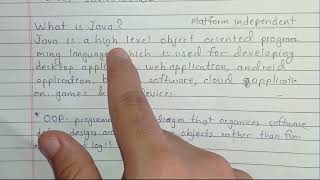 What is Java?
Platform independent
Java is a high level object oriented program
ming language which is used for developing
desktop application, web application, android
application, software, cloud
on, games & devices.
* OOP- program that organizes software
design objects rather than fun
logi